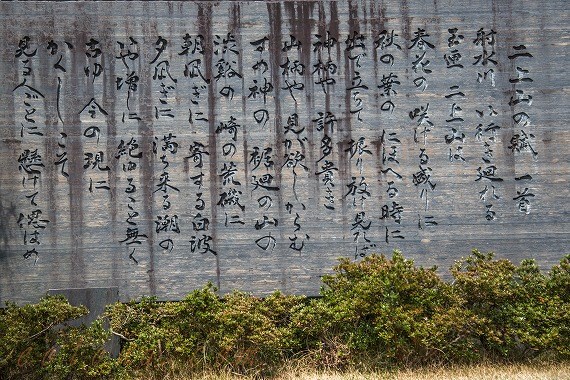 二上山の賦一首
射水川 い行き廻れる
玉匣 二上山は
春花の 咲ける盛りに
秋の葉の にほへる時に
出で立ちて 振り放け見れば
神柄や 許多貴き
山柄や 見が欲しからむ
すめ神の 裾廻の山の
渋谿の 崎の荒磯に
朝凪ぎに 寄する白波
夕凪ぎに 満ち来る潮の
いや増しに 絶ゆること無く
古ゆ 今の現に
かくしこそ
見る人ごとに 懸けて偲はめ